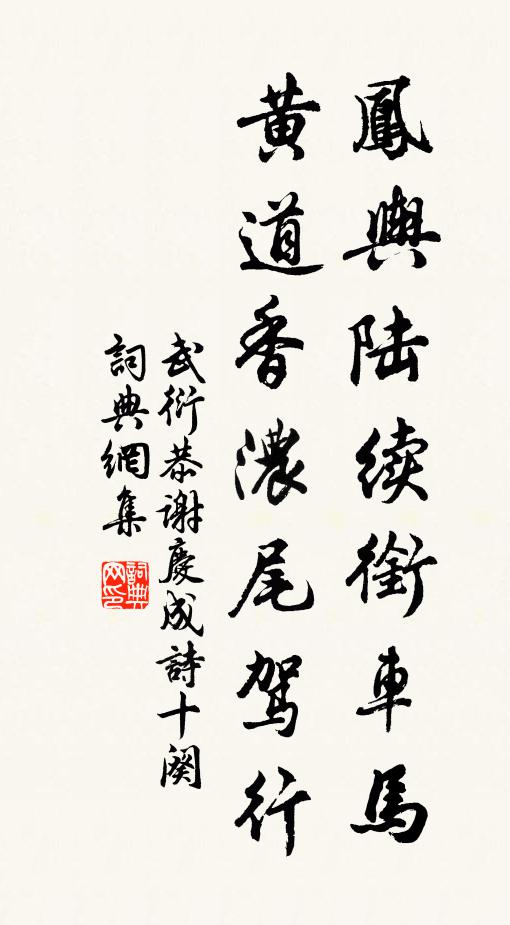 鳳輿陆续銜車馬
黄道香濃尾駕行
武衍恭谢慶成詩十闋
詞典網集
詞典
网印